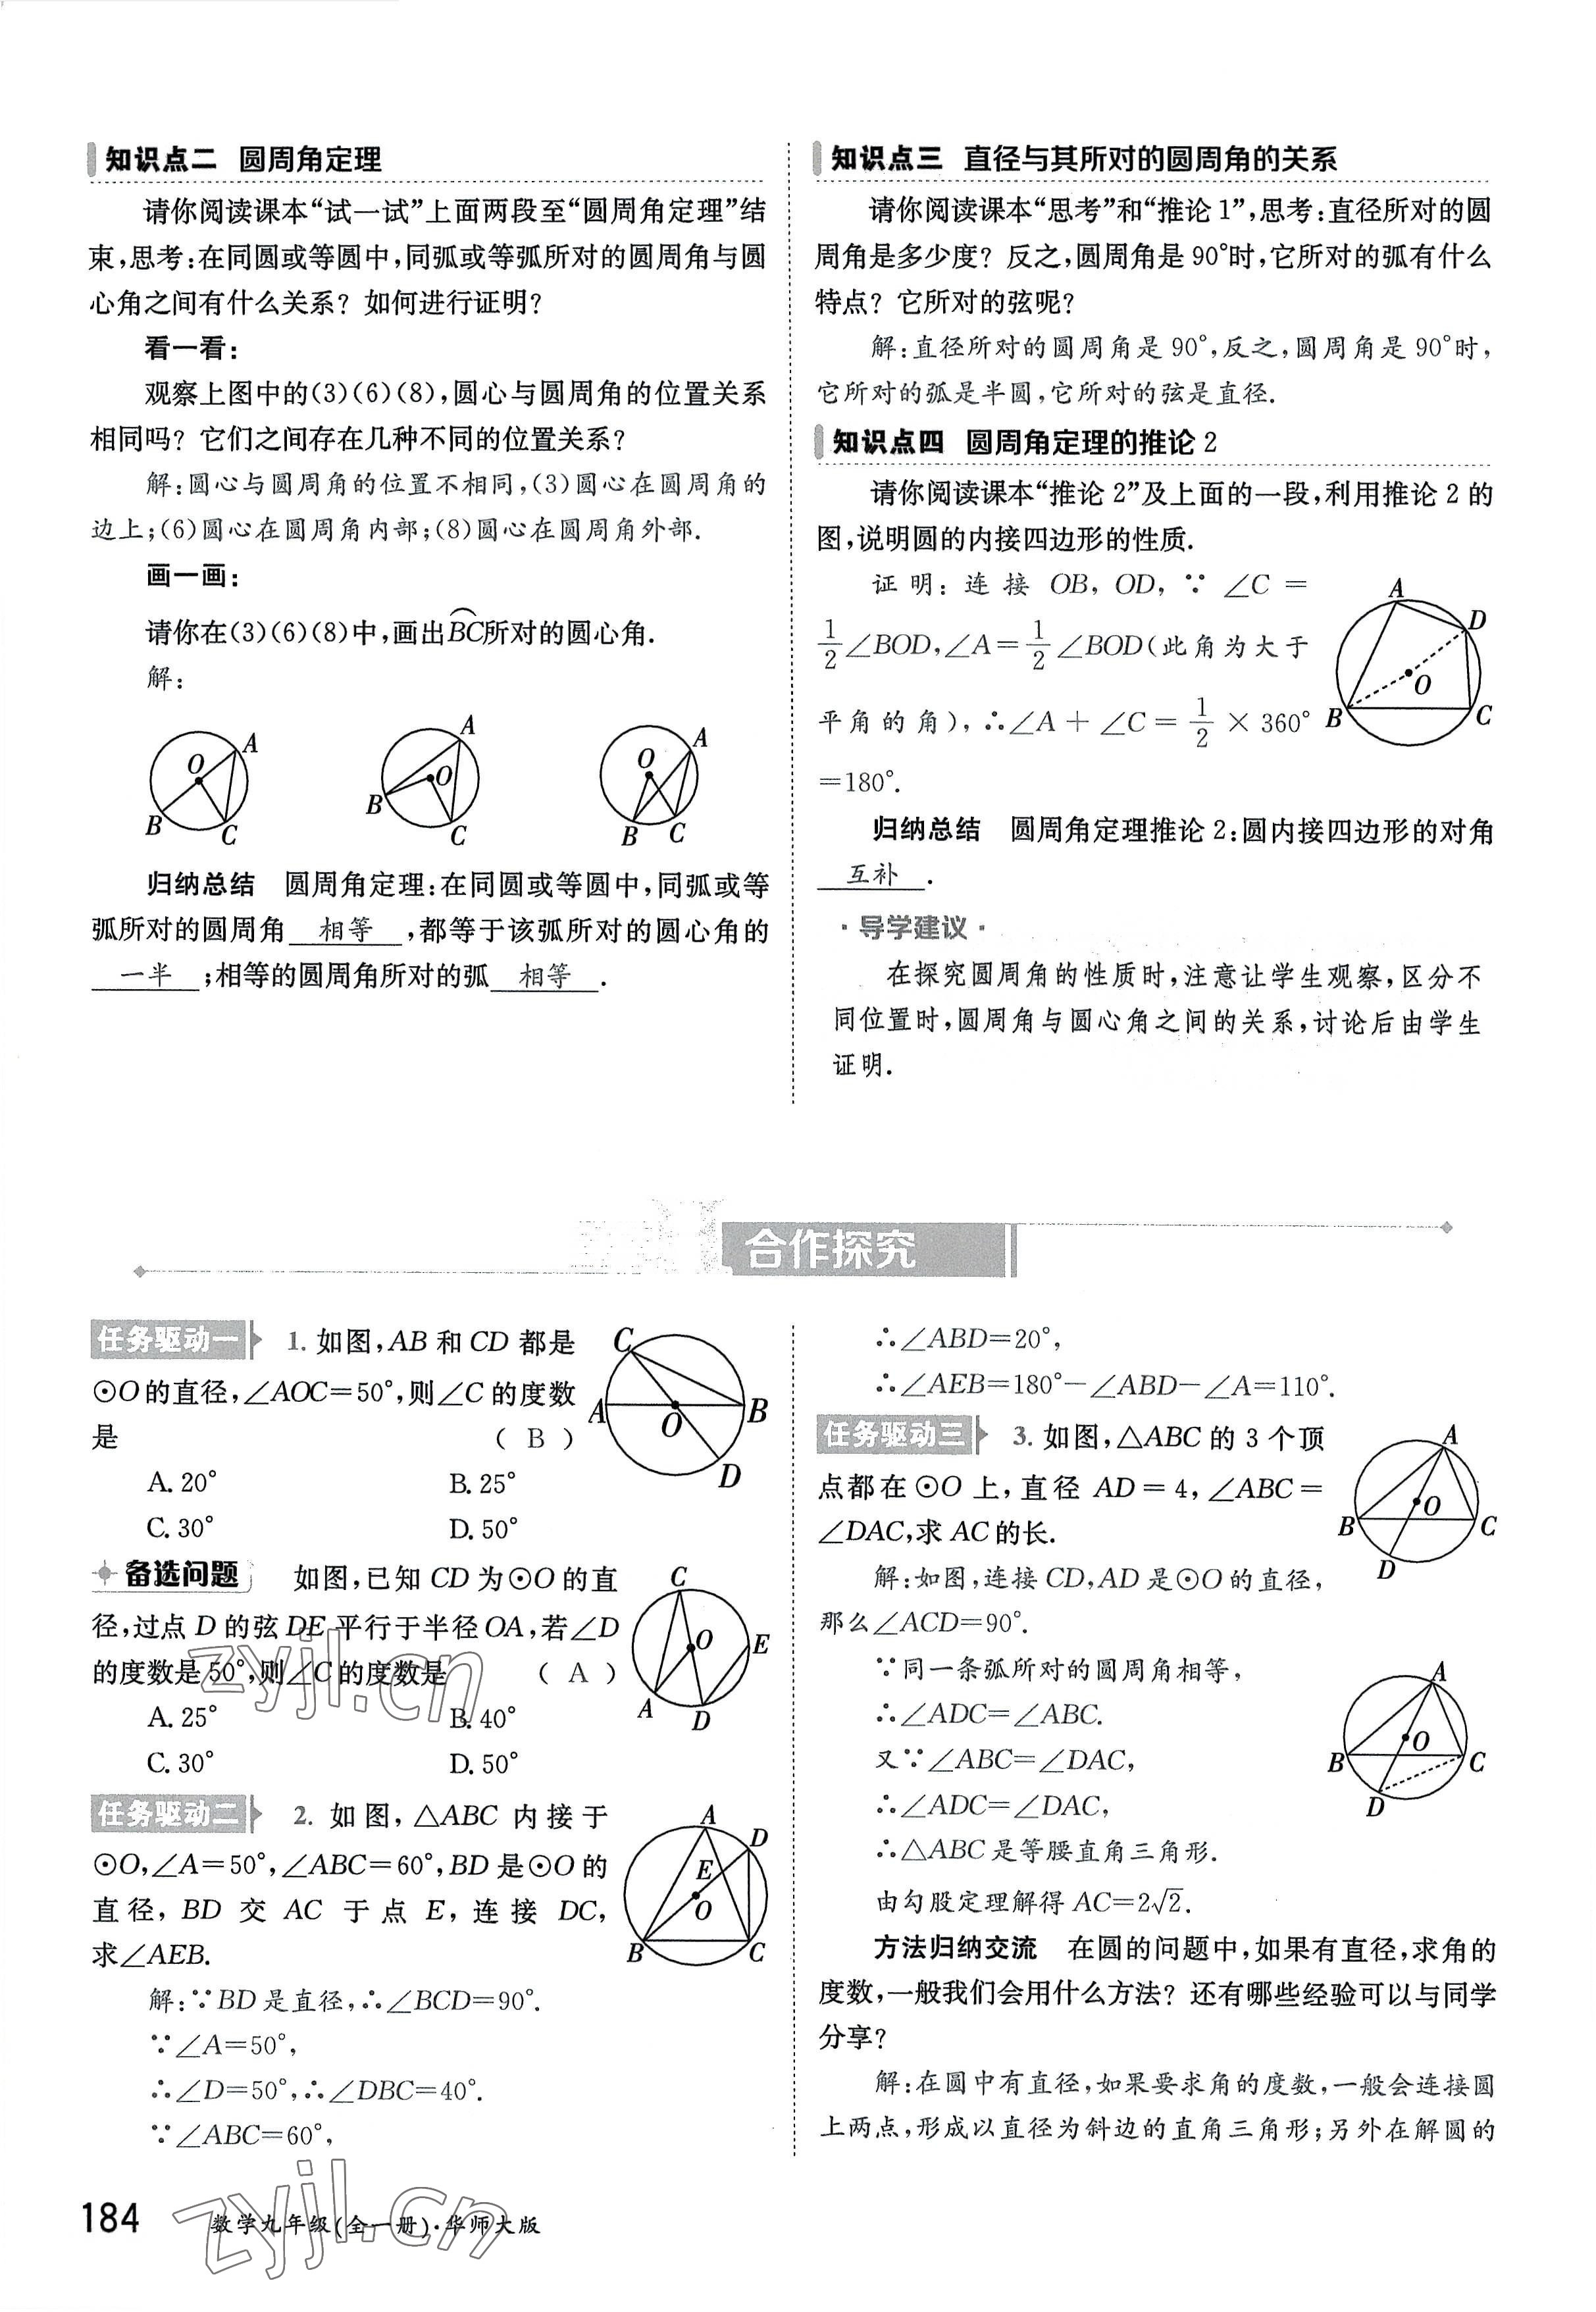 知识点二 圆周角定理
请你阅读课本“试一试”上面两段至“圆周角定理”结
束,思考:在同圆或等圆中,同弧或等弧所对的圆周角与圆
心角之间有什么关系?如何进行证明?
看一看:
观察上图中的(3)(6)(8),圆心与圆周角的位置关系
相同吗?它们之间存在几种不同的位置关系?
解:圆心与圆周角的位置不相同,(3)圆心在圆周角的
边上;(6)圆心在圆周角内部;(8)圆心在圆周角外部.
画一画:
请你在(3)(6)(8)中,画出BC所对的圆心角.
解:
A O B C
A O B C
A O B C
归纳总结 圆周角定理:在同圆或等圆中,同弧或等
弧所对的圆周角 相等 ,都等于该弧所对的圆心角的
一半 ;相等的圆周角所对的弧 相等 .
知识点三 直径与其所对的圆周角的关系
请你阅读课本“思考”和“推论1”,思考:直径所对的圆
周角是多少度?反之,圆周角是90°时,它所对的弧有什么
特点?它所对的弦呢?
解:直径所对的圆周角是90°,反之,圆周角是90°时,
它所对的弧是半圆,它所对的弦是直径.
知识点四 圆周角定理的推论2
请你阅读课本“推论2”及上面的一段,利用推论2的
图,说明圆的内接四边形的性质.
证明:连接OB,OD,∵∠C=
1/2∠BOD,∠A=1/2∠BOD(此角为大于
平角的角),∴∠A+∠C=1/2×360°
=180°.
A D O B C
归纳总结 圆周角定理推论2:圆内接四边形的对角
互补 .
·导学建议·
在探究圆周角的性质时,注意让学生观察,区分不
同位置时,圆周角与圆心角之间的关系,讨论后由学生
证明.
合作探究
任务驱动一 1. 如图,AB和CD都是
⊙O的直径,∠AOC=50°,则∠C的度数
是 ( B )
A. 20° B. 25°
C. 30° D. 50°
C A O B D
备选问题 如图,已知CD为⊙O的直
径,过点D的弦DE平行于半径OA,若∠D
的度数是50°,则∠C的度数是 ( A )
A. 25° B. 40°
C. 30° D. 50°
C O E A D
任务驱动二 2. 如图,△ABC内接于
⊙O,∠A=50°,∠ABC=60°,BD是⊙O的
直径,BD交AC于点E,连接DC,
求∠AEB.
A D E O B C
解:∵BD是直径,∴∠BCD=90°.
∵∠A=50°,
∴∠D=50°,∴∠DBC=40°.
∵∠ABC=60°,
∴∠ABD=20°,
∴∠AEB=180°-∠ABD-∠A=110°.
任务驱动三 3. 如图,△ABC的3个顶
点都在⊙O上,直径AD=4,∠ABC=
∠DAC,求AC的长.
A O B C D
解:如图,连接CD,AD是⊙O的直径,
那么∠ACD=90°.
∵同一条弧所对的圆周角相等,
∴∠ADC=∠ABC.
又∵∠ABC=∠DAC,
∴∠ADC=∠DAC,
∴△ABC是等腰直角三角形.
由勾股定理解得AC=2√2.
A O B C D
方法归纳交流 在圆的问题中,如果有直径,求角的
度数,一般我们会用什么方法?还有哪些经验可以与同学
分享?
解:在圆中有直径,如果要求角的度数,一般会连接圆
上两点,形成以直径为斜边的直角三角形;另外在解圆的
184 数学九年级(全一册)·华师大版
zyjl.cn
zyjl.cn